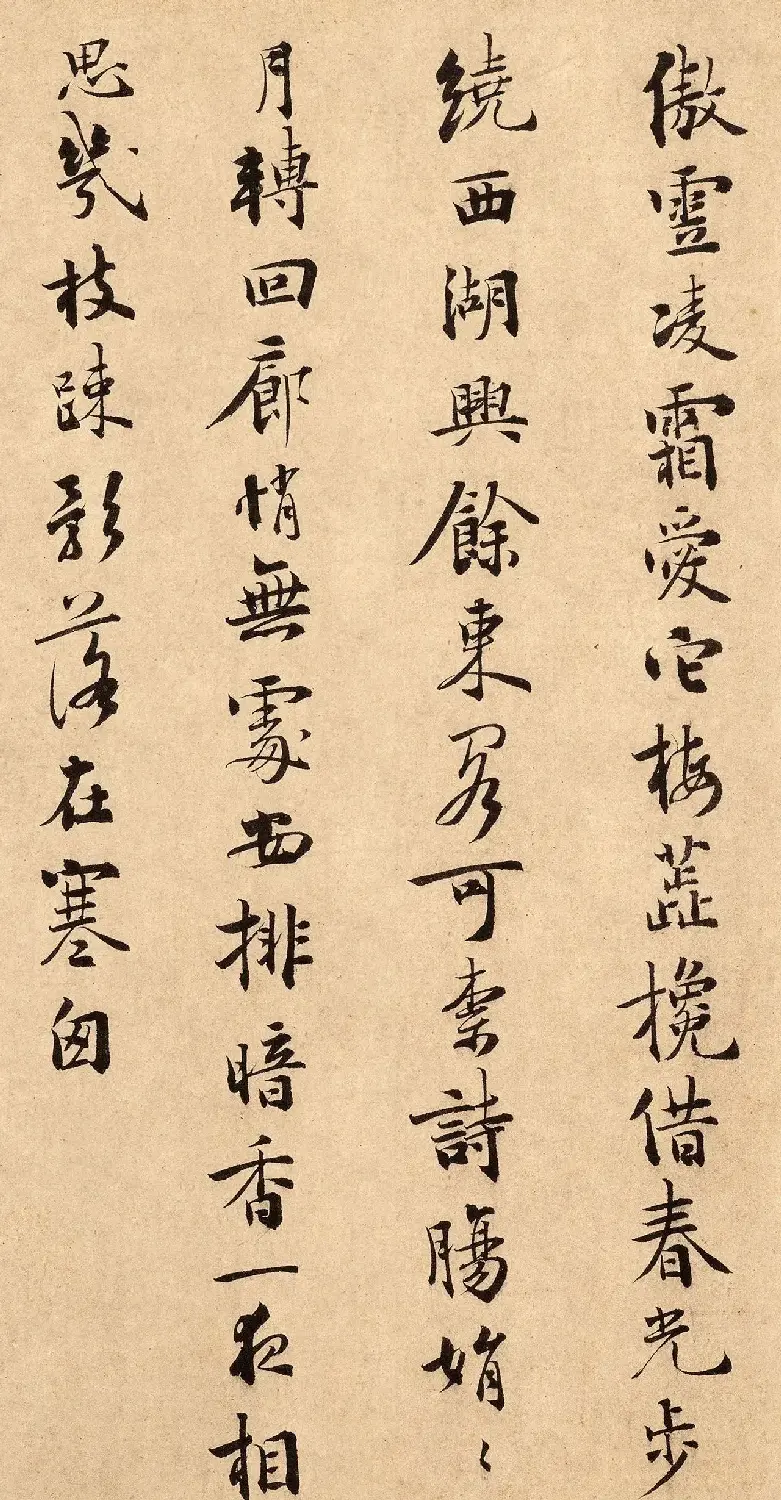 傲雪凌霜愛它梅蕋攙借春光步
繞西湖興餘東閣可柰詩腸娟〻
月轉回廊悄無處安排暗香一夜相
思幾枝踈影落在寒窗